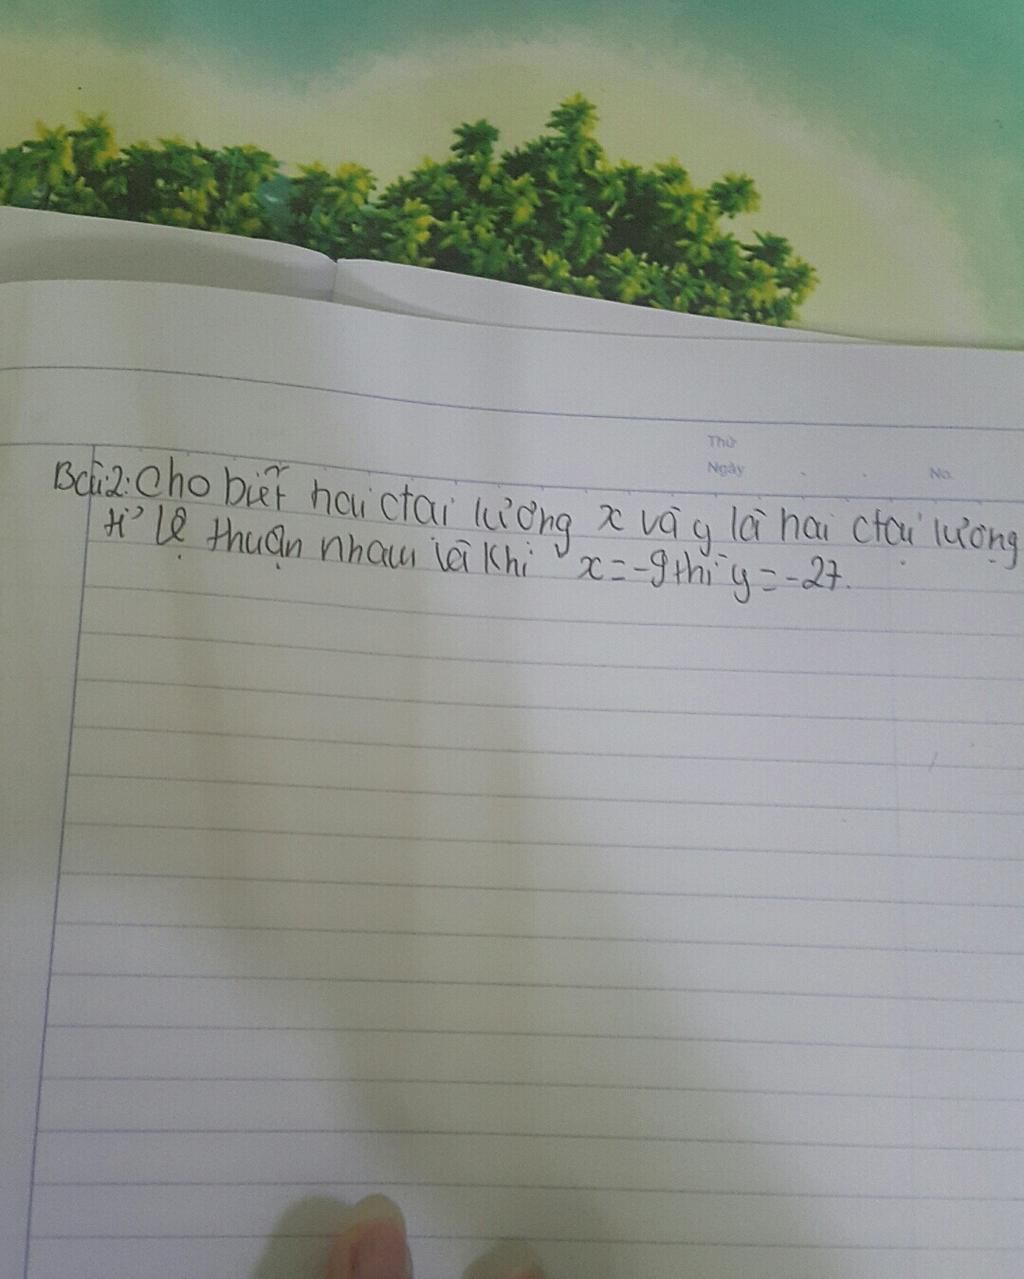 Thứ
Ngày
No.
Bài 2: Cho biết hai đại lương x và y là hai đại lương
tỉ lệ thuận nhau và khi x = -9 thì y = -27.